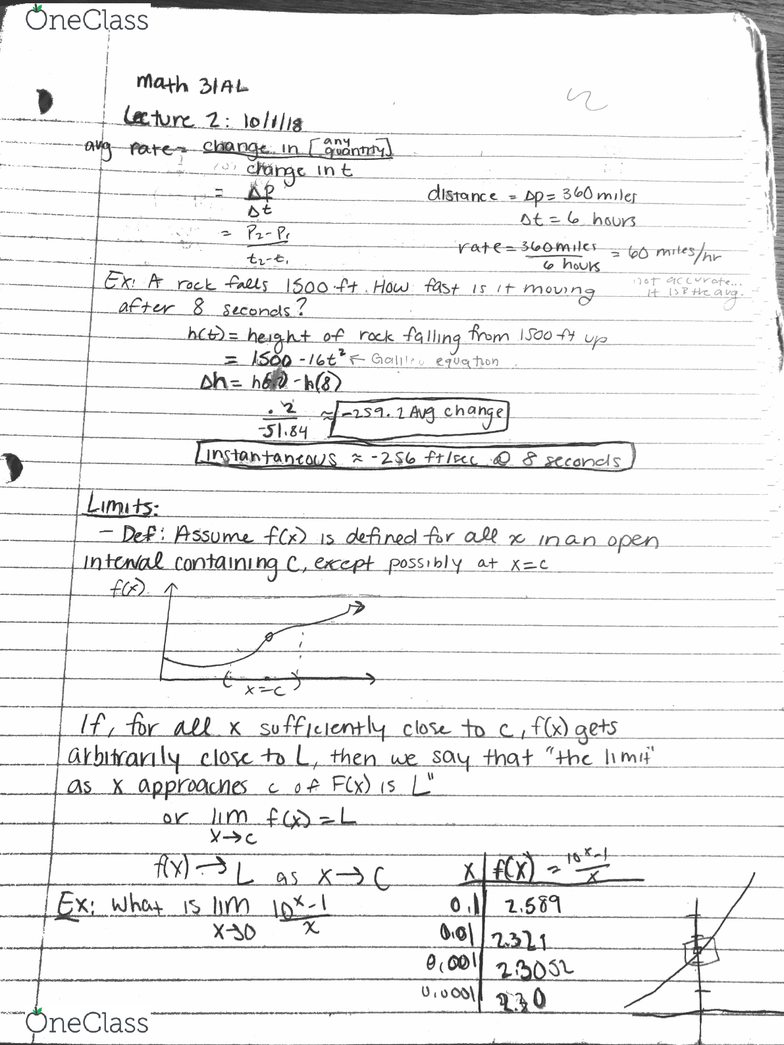 OneClass
Math 31AL
Lecture 2: 10/1/18
avg rate = change in [any quantity]
change in t
= Δp
Δt
= P₂-P₁
t₂-t₁
distance = Δp = 360 miles
Δt = 6 hours
rate = 360 miles = 60 miles/hr
6 hours
not accurate...
it is the avg.
Ex: A rock falls 1500 ft. How fast is it moving
after 8 seconds?
h(t) = height of rock falling from 1500 ft up
= 1500 - 16t² ← Galileo equation
Δh = - h(8)
.2
-51.84
≈ -259.2 Avg change
instantaneous ≈ -256 ft/sec @ 8 seconds
Limits:
- Def: Assume f(x) is defined for all x in an open
interval containing C, except possibly at x=c
f(x)
( x=c )
If, for all x sufficiently close to c, f(x) gets
arbitrarily close to L, then we say that "the limit"
as x approaches c of F(x) is L"
or lim f(x) = L
x→c
f(x) → L as x → C
Ex: What is lim 10ˣ-1
x→0 x
x f(x) = 10ˣ-1
x
0.1 2.589
0.01 2.321
0.001 2.3052
0.0001 2.30
OneClass